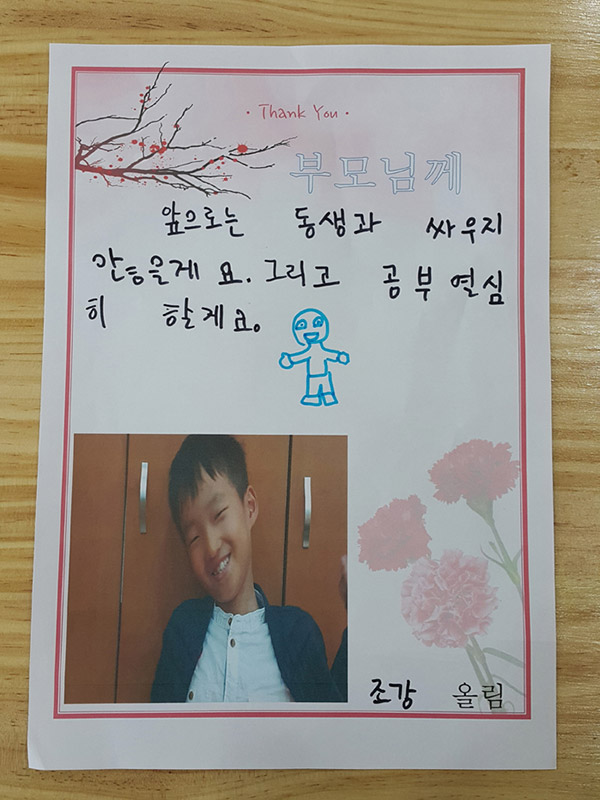 · Thank You ·
부모님께
앞으로는 동생과 싸우지
안을게요. 그리고 공부 열심
히 할게요.
조강 올림